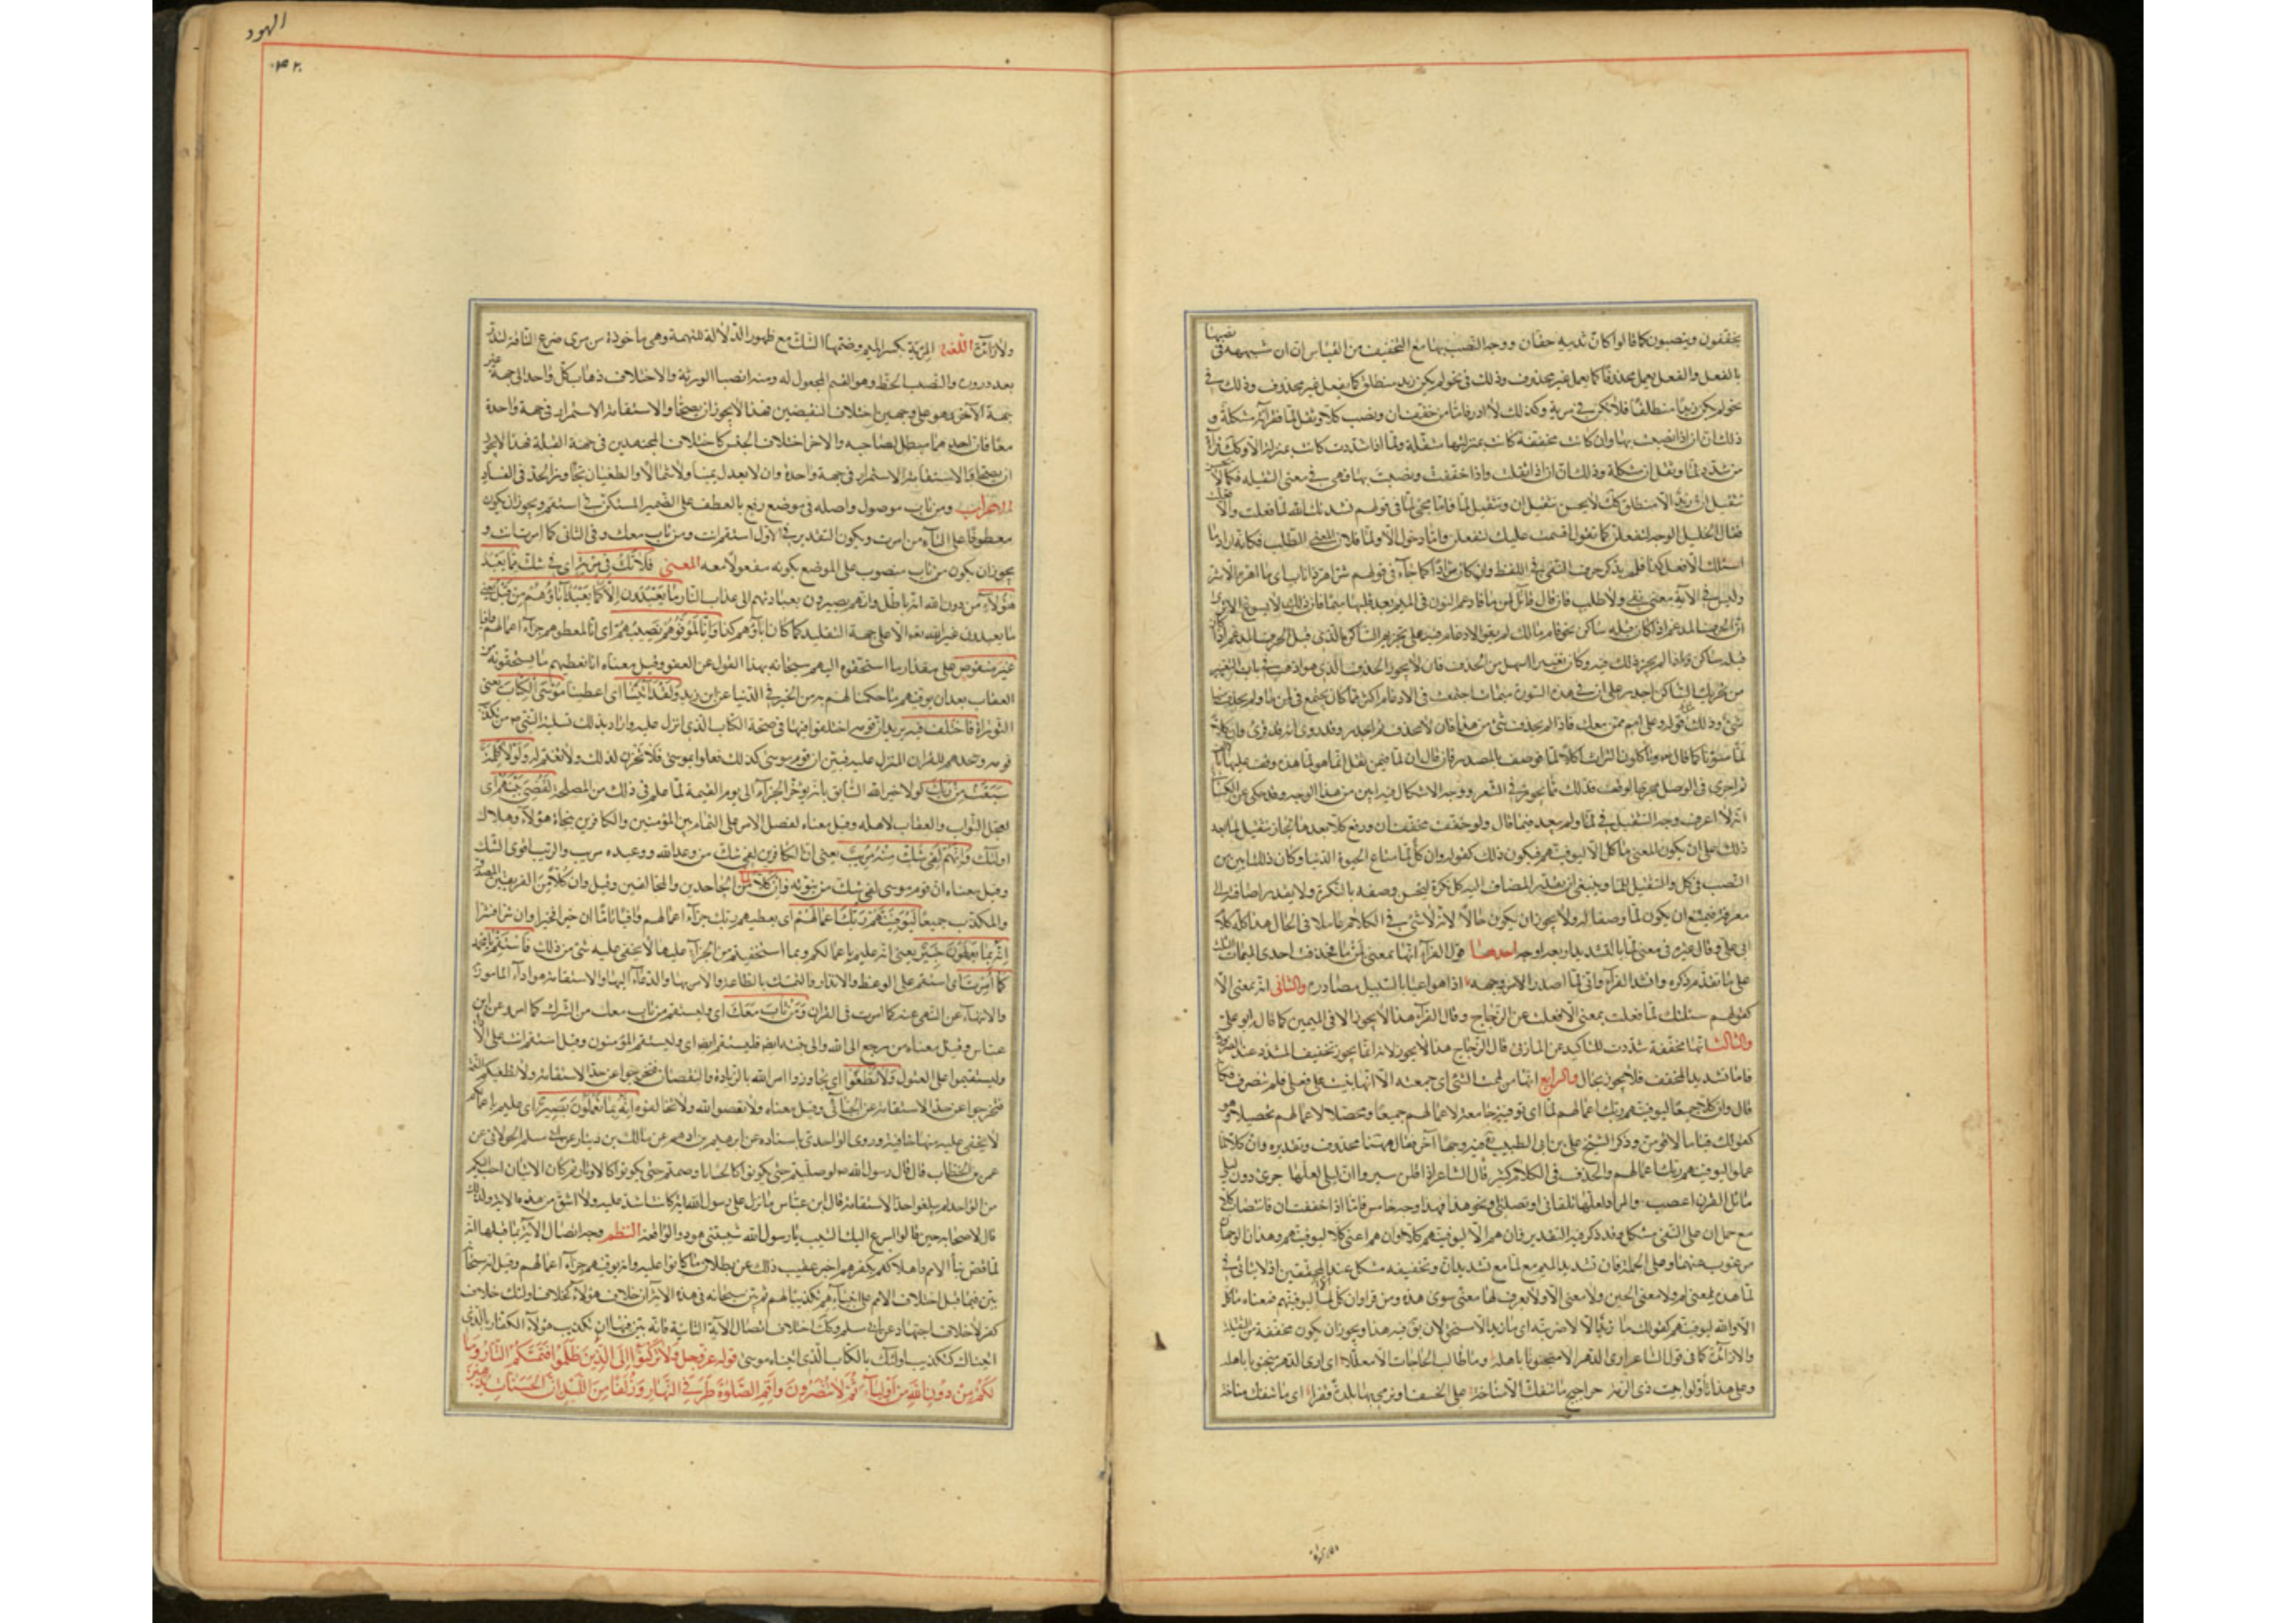 يخففون وينصبون كما قالوا كان ثدييه حقان ووجه النصب بها مع التخفيف من القياس ان ان شبهه في نصبها
بالفعل والفعل يعمل محذوفا كما يعمل غير محذوف وذلك في نحو لم يكن زيد منطلقا كما يعمل غير محذوف وذلك في
نحو لم يك زيد منطلقا فلا تك في مرية وكذلك لا ادر فاما من خفف ان ونصب كلا وثقل لما فقراءته مشكلة و
ذلك ان ان اذا نصب بها وان كانت مخففة كانت بمنزلتها مثقلة ولما اذا شددت كانت بمنزلة الا وكذلك قراءة
من شدد لما وثقل ان مشكلة وذلك ان ان اذا ثقلت واذا خففت ونصبت بها فهي في معنى الثقيلة فكما لا
تثقيل ان زيدا الا منطلق كذلك لا يحسن تثقيل ان وتثقيل لما فاما مجئ لما في قولهم نشدتك الله لما فعلت والا فعلت
فقال الخليل الوجه لتفعلن كما تقول اقسمت عليك لتفعلن واما دخول الا ولما فلان المعنى الطلب فكانه اراد ما
اسئلك الا فعل كذا فلم يذكر حرف النفي في اللفظ وان كان مرادا كما جاء في قولهم شر اهر ذا ناب اى ما اهره الا شر
وليس في الآية معنى نفي ولا طلب فان قال قائل لمن ما فادغم النون في الميم بعد قلبها ميما فان ذلك لا يسوغ الا ترى
ان الحرف المدغم اذا كان قبله ساكن نحو قوم مالك لم يقو الادغام فيه على تحريك الساكن الذي قبل الحرف المدغم
من تحريك الساكن اجدر على ان في هذه السورة ميمات اجتمعت في الادغام اكثر مما كان يجتمع في لمن ما ولم يحذف منها
شئ وذلك قوله وعلى امم ممن معك فاذا لم يحذف شئ من هذا فان لا يحذف ثم اجدر وقد روى انه قد قرئ وان كلا
لما منونا كما قال وتأكلون التراث اكلا لما فوصف بالمصدر فان قال ان لما فيمن ثقل انما هو لما هذه وقف عليها بالالف
ثم اجرى في الوصل مجرى الوقف فذلك مما يجوز في الشعر ووجه الاشكال فيه ابين من هذا الوجه وقد حكى عن الكسائي
انه لا اعرف وجه التثقيل في لما ولم يبعد فيما قال ولو خففت مخفف ان ورفع كلا بعدها لجاز تثقيل لما بعد
ذلك على ان يكون المعنى ما كل الا ليوفينهم فيكون ذلك كقوله وان كل لما متاع الحيوة الدنيا وكان ذلك ابين من
النصب في كل والتثقيل للما وينبغي ان يقدر المضاف اليه كل نكرة ليحسن وصفه بالنكرة ولا يقدر اضافته الى
معرفة فيمتنع ان يكون لما وصفا له ولا يجوز ان يكون حالا لانه لا شئ في الكلام عاملا في الحال هذا كله كلام
ابى على وقال غيره في معنى لما بالتشديد اربعة اوجه احدها قول الفراء انها بمعنى لمن ما فحذفت احدى الميمات الثلث
على ما تقدم ذكره وانشد الفراء وانى لما اصدر الامر وجهه اذا هو اعيا بالسبيل مصادره والثاني انه بمعنى الا
كقولهم سئلتك لما فعلت بمعنى الا فعلت عن الزجاج وقال الفراء هذا لا يجوز الا في اليمين كما قال ابو على
والثالث انها مخففة شددت للتأكيد عن المازنى قال الزجاج هذا لا يجوز لانه انما يجوز تخفيف المشدد عند الضرورة
فاما تشديد المخفف فلا يجوز بحال والرابع انها من لممت الشئ اى جمعته الا انها بنيت على فعلى فلم تصرف فكانه
قال وان كلا جميعا ليوفينهم ربك اعمالهم لما اى توفية جامعة لاعمالهم جميعا ومحصلا لاعمالهم تحصيلا فهو
كقولك قياما لاقومن وذكر الشيخ على بن ابى الطيب فيه وجها آخر فقال ههنا محذوف وتقديره وان كلا لما
عملوا ليوفينهم ربك اعمالهم والحذف في الكلام كثير قال الشاعر اذا قلت سيروا ان ليلى لعلها جرى دون ليلى
مائل القرن اعضب والمراد لعلها تلقاني او تصلني ونحو هذا فهذا وجه خامس فاما اذا خففت ان فانتصاب كلا
مع حمل ان على النفي مشكل وقد ذكر فيه التقدير فان هم الا ليوفينهم كلا وان هم اعنى كلا ليوفينهم وهذان الوجهان
مرغوب عنهما وعلى الجملة فان تشديد الميم مع لما مع تشديد ان وتخفيفه مشكل عند المحققين اذ لا يتأتى في
لما هذه معنى لم ولا معنى الحين ولا معنى الا ولا يعرف لها معنى سوى هذه ومن قرأ وان كل لما ليوفينهم فمعناه ما كل
الا والله ليوفينهم كقولك ما زيد الا لاضربنه اى ما زيد الا مستحق لان يق فيه هذا ويجوز ان يكون مخففة من الثقيلة
والا زائدة كما في قول الشاعر ارى الدهر الا منجنونا باهله وما طالب الحاجات الا معللا اى ارى الدهر منجنونا باهله
وعلى هذا تأولوا بيت ذى الرمة حراجيج ما تنفك الا مناخة على الخسف او نرمى بها بلدا قفرا اى ما تنفك مناخة
والا زائدة
الهود
ولا زائدة اللغة المرية بكسر الميم وضمها الشك مع ظهور الدلالة للتهمة وهى ماخوذة من مرى ضرع الناقة لتدر
بعد درور والنصيب الحظ وهو القسم المجعول له ومنه انصباء الورثة والاختلاف ذهاب كل واحد الى جهة غير
جهة الآخر وهو على وجهين اختلاف النقيضين فهذا لا يجوز ان يصحا والاستقامة الاستمرار في جهة واحدة
معا فان احدهما مبطل لصاحبه والاخر اختلاف الجنس كاختلاف المجتهدين في جهة القبلة فهذا لا يجوز
ان يصحا والاستقامة الاستمرار في جهة واحدة وان لا يعدل يمينا ولا شمالا والطغيان تجاوز الحد في الفساد
الاعراب ومن تاب موصول واصله في موضع رفع بالعطف على الضمير المستكن في استقم ويجوز ان يكون
معطوفا على التاء من امرت ويكون التقدير في الاول استقم انت ومن تاب معك وفي الثاني كما امرت انت و
يجوز ان يكون من تاب منصوب على الموضع بكونه مفعولا معه المعنى فلا تك في مرية اى في شك مما يعبد
هؤلاء من دون الله انه باطل وانهم يصيرون بعبادتهم الى عذاب النار ما يعبدون الا كما يعبد آباؤهم من قبل يعنى
ما يعبدون غير الله تعه الا على جهة التقليد كما كان اباؤهم كذا وانا لموفوهم نصيبهم اى انا لمعطوهم جزاء اعمالهم وافيا
غير منقوص على مقدار ما استحقوه اليهم سبحانه بهذا القول عن العفو وقيل معناه انا نعطيهم ما يستحقونه من
العقاب بعد ان يوفيهم ما حكمنا لهم به من الخير في الدنيا عن ابن زيد ولقد آتينا اى اعطينا موسى الكتاب يعنى
التوراة فاختلف فيه يريد ان قومه اختلفوا فيها في صحة الكتاب الذى انزل عليه واراد بذلك تسلية النبى من تكذيب
قومه وجحدهم للقرآن المنزل عليه فبين ان قوم موسى كذلك فعلوا بموسى فلا تحزن لذلك ولا تغتم له ولولا كلمة
سبقت من ربك لولا خبر الله السابق بانه يؤخر الجزاء الى يوم القيمة لما علم في ذلك من المصلحة لقضى بينهم اى
لعجل الثواب والعقاب لاهله وقيل معناه لفصل الامر على التمام بين المؤمنين والكافرين بنجاة هؤلاء وهلاك
اولئك وانهم لفى شك منه مريب يعنى ان الكافرين لفى شك من وعد الله ووعيده مريب والريب اقوى الشك
وقيل معناه ان قوم موسى لفى شك من نبوته وان كلا من الجاحدين والمخالفين وقيل وان كلا من الفريقين المصدق
والمكذب جميعا ليوفينهم ربك اعمالهم اى يعطيهم ربك جزاء اعمالهم وافيا تاما ان خيرا فخيرا وان شرا فشرا
انه بما يعملون خبير يعنى انه عليم باعمالكم وبما استحقيتم من الجزاء عليها لا يخفى عليه شئ من ذلك فاستقم يا محمد
كما امرت اى استقم على الوعظ والانذار والتمسك بالطاعة والامر بها والدعاء اليها والاستقامة هو اداء المأمور
والانتهاء عن النهى عنه كما امرت في القران ومن تاب معك اى وليستقم من تاب معك من الشرك كما امر عن ابن
عباس وقيل معناه من رجع الى الله والى نبيه ايضا فليستقم ايضا اى وليستقم المؤمنون وقيل استقم انت على الاداء
وليستقيموا على القبول ولا تطغوا اى تجاوزوا امر الله بالزيادة والنقصان فتخرجوا عن حد الاستقامة ولا تطغينكم النعمة
فتخرجوا عن حد الاستقامة عن الجبائى وقيل معناه ولا تعصوا الله ولا تخالفوه انه بما تعملون بصير اى عليم باعمالكم
لا يخفى عليه منها خافية وروى الواحدى باسناده عن ابرهيم بن ادهم عن مالك بن دينار عن ابى مسلم الخولانى عن
عمر بن الخطاب قال قال رسول الله لو صليتم حتى يكونوا كالحنايا وصمتم حتى يكونوا كالاوتار ثم كان الاثنان احب اليكم
من الواحد لم يبلغوا حد الاستقامة قال ابن عباس ما نزل على رسول الله آية كانت اشد عليه ولا اشق من هذه الآية ولذلك
قال لاصحابه حين قالوا اسرع اليك الشيب يا رسول الله شيبتنى هود والواقعة النظم وجه اتصال الآية بما قبلها انه
لما قص نبأ الامم واهلاكهم بكفرهم اخبر عقيب ذلك عن بطلان ما كانوا عليه وانه يوفيهم جزاء اعمالهم وقيل انه سبحانه
بين فيما قبل اختلاف الامم على انبيائهم تكذيبا لهم ثم بين سبحانه في هذه الآية ان خلاف هؤلاء كخلاف اولئك خلاف
كفر لا خلاف اجتهاد عن ابى مسلم وكذلك اختلاف اتصال الآية الثانية فانه بين فيها ان تكذيب هؤلاء الكفار بالذى
اتيناك كتكذيب اولئك بالكتاب الذى اتيناه موسى قوله عز وجل ولا تركنوا الى الذين ظلموا فتمسكم النار وما
لكم من دون الله من اولياء ثم لا تنصرون واقم الصلوة طرفى النهار وزلفا من الليل ان الحسنات يذهبن